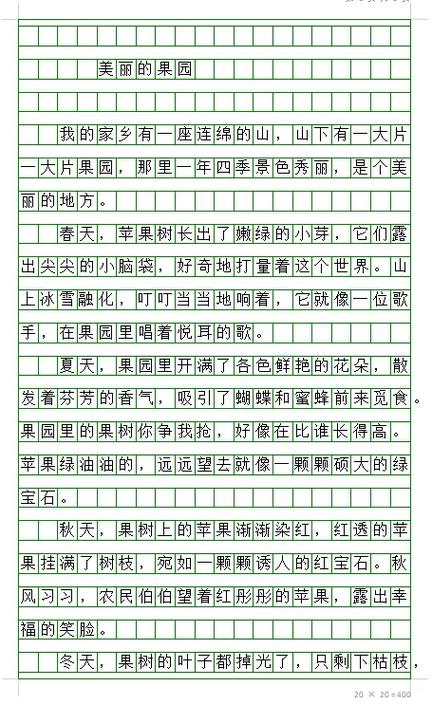 美丽的果园
我的家乡有一座连绵的山，山下有一大片
一大片果园，那里一年四季景色秀丽，是个美
丽的地方。
春天，苹果树长出了嫩绿的小芽，它们露
出尖尖的小脑袋，好奇地打量着这个世界。山
上冰雪融化，叮叮当当地响着，它就像一位歌
手，在果园里唱着悦耳的歌。
夏天，果园里开满了各色鲜艳的花朵，散
发着芬芳的香气，吸引了蝴蝶和蜜蜂前来觅食。
果园里的果树你争我抢，好像在比谁长得高。
苹果绿油油的，远远望去就像一颗颗硕大的绿
宝石。
秋天，果树上的苹果渐渐染红，红透的苹
果挂满了树枝，宛如一颗颗诱人的红宝石。秋
风习习，农民伯伯望着红彤彤的苹果，露出幸
福的笑脸。
冬天，果树的叶子都掉光了，只剩下枯枝，
20 × 20=400